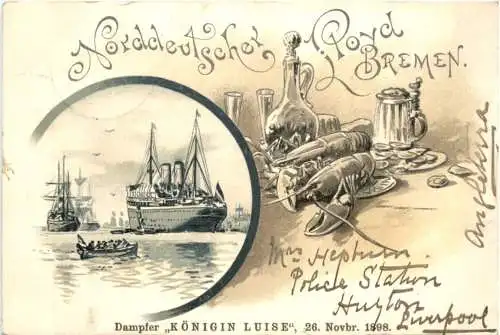 Norddeutscher Lloyd
BREMEN.
Mrs Hepburn.
Police Station
Huyton
Liverpool
Angleterra
Dampfer „KÖNIGIN LUISE", 26. Novbr. 1898.